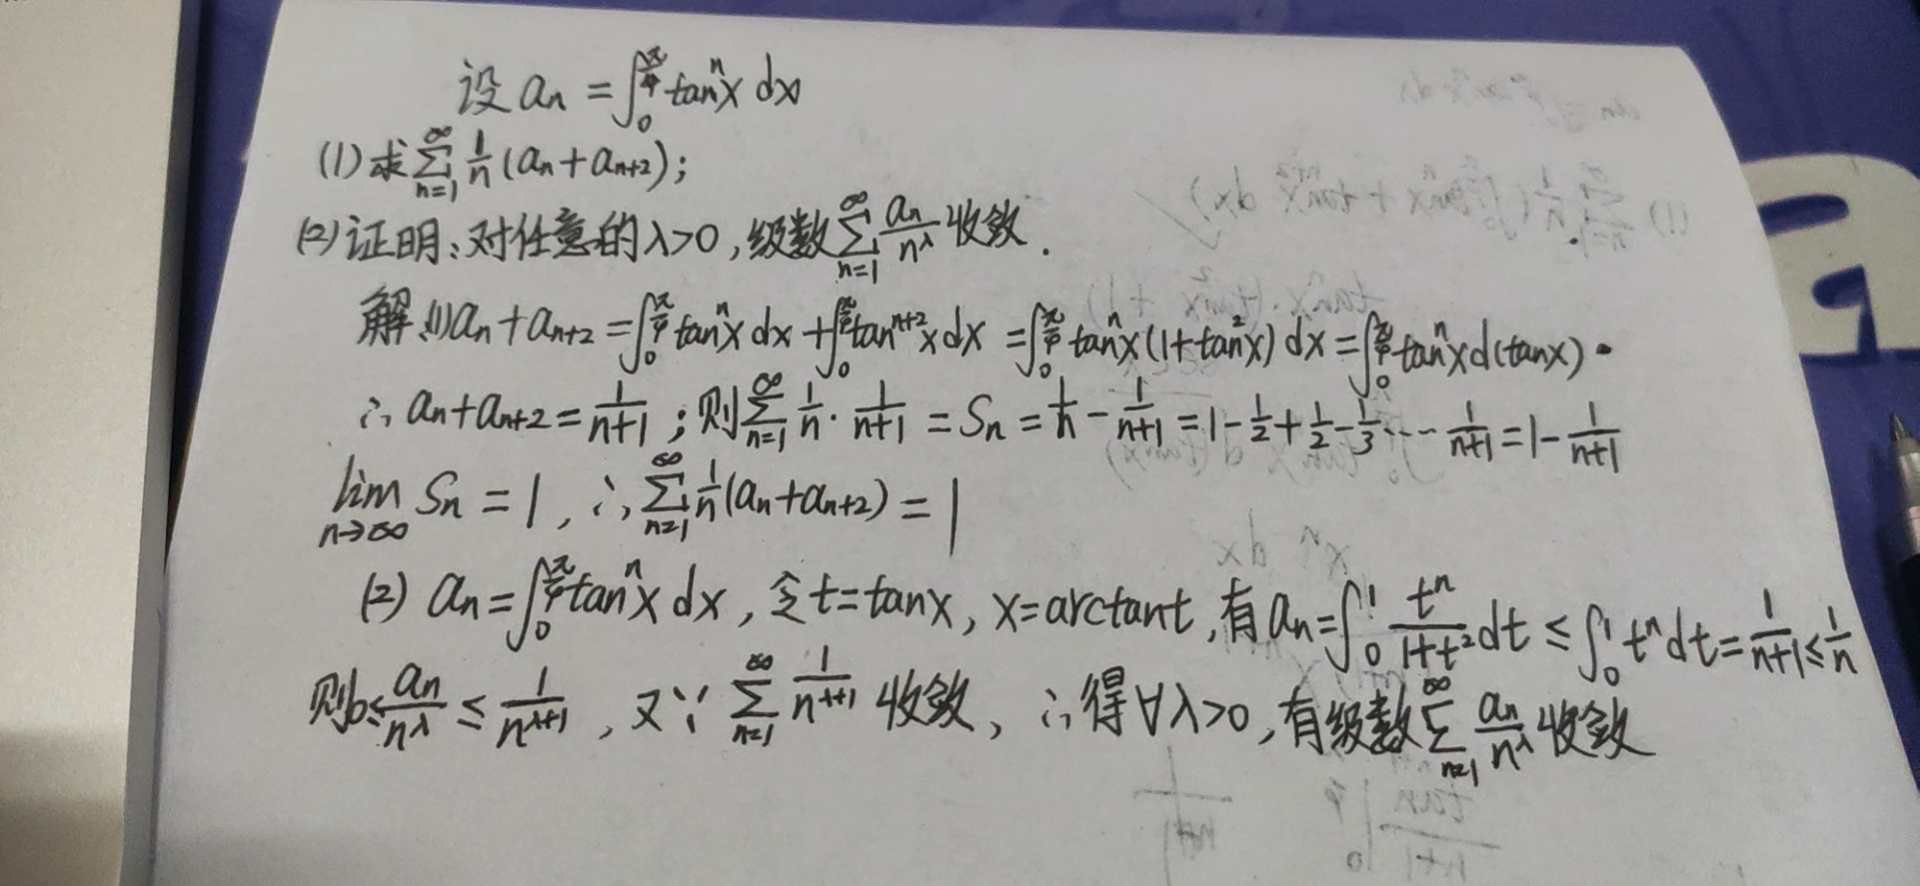 设 aₙ = ∫₀^(π/4) tanⁿx dx
(1) 求 ∑_{n=1}^{∞} 1/n (aₙ + aₙ₊₂);
(2) 证明:对任意的 λ>0, 级数 ∑_{n=1}^{∞} aₙ/n^λ 收敛.
解 (1) aₙ + aₙ₊₂ = ∫₀^(π/4) tanⁿx dx + ∫₀^(π/4) tanⁿ⁺²x dx = ∫₀^(π/4) tanⁿx (1+tan²x) dx = ∫₀^(π/4) tanⁿx d(tanx).
∴ aₙ + aₙ₊₂ = 1/(n+1) ; 则 ∑_{n=1}^{∞} 1/n · 1/(n+1) = Sₙ = 1/n - 1/(n+1) = 1 - 1/2 + 1/2 - 1/3 ··· - 1/(n+1) = 1 - 1/(n+1)
lim_{n→∞} Sₙ = 1, ∴ ∑_{n=1}^{∞} 1/n (aₙ + aₙ₊₂) = 1
(2) aₙ = ∫₀^(π/4) tanⁿx dx, 令 t = tanx, x = arctant, 有 aₙ = ∫₀^1 tⁿ/(1+t²) dt ≤ ∫₀^1 tⁿ dt = 1/(n+1) ≤ 1/n
则 0 ≤ aₙ/n^λ ≤ 1/n^(λ+1), 又∵ ∑_{n=1}^{∞} 1/n^(λ+1) 收敛, ∴ 得 ∀λ>0, 有级数 ∑_{n=1}^{∞} aₙ/n^λ 收敛